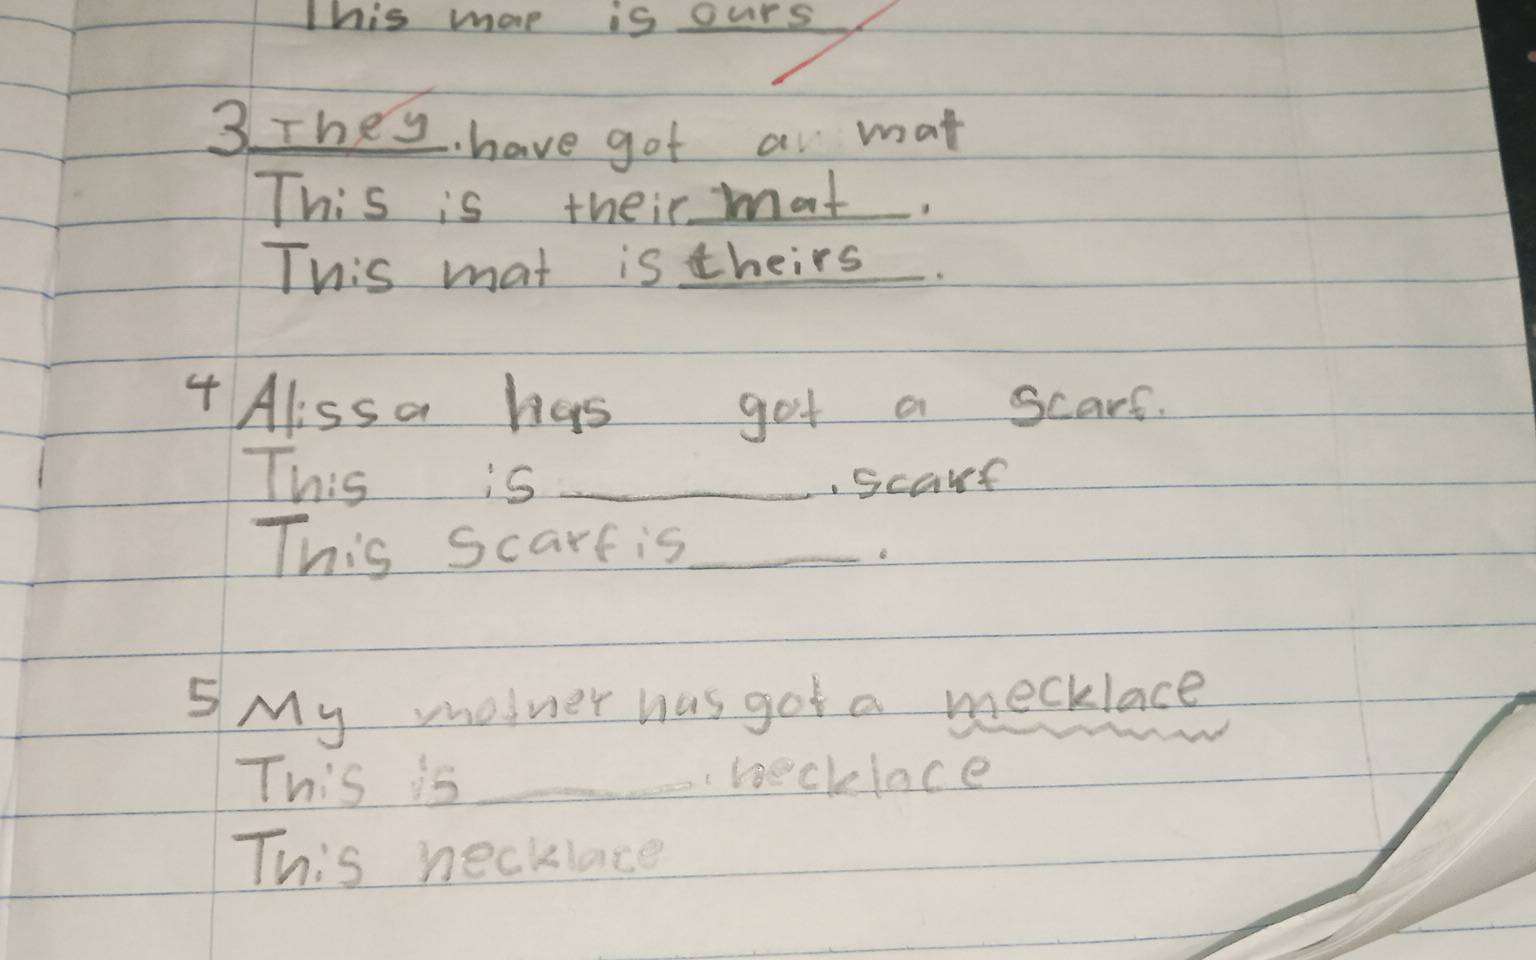 This map is ours
3 They. have got a mat
This is their mat.
This mat is theirs.
4 Alissa has got a scarf.
This is ________. scarf
This scarf is ______.
5 My mother has got a mecklace
This is ________. necklace
This necklace